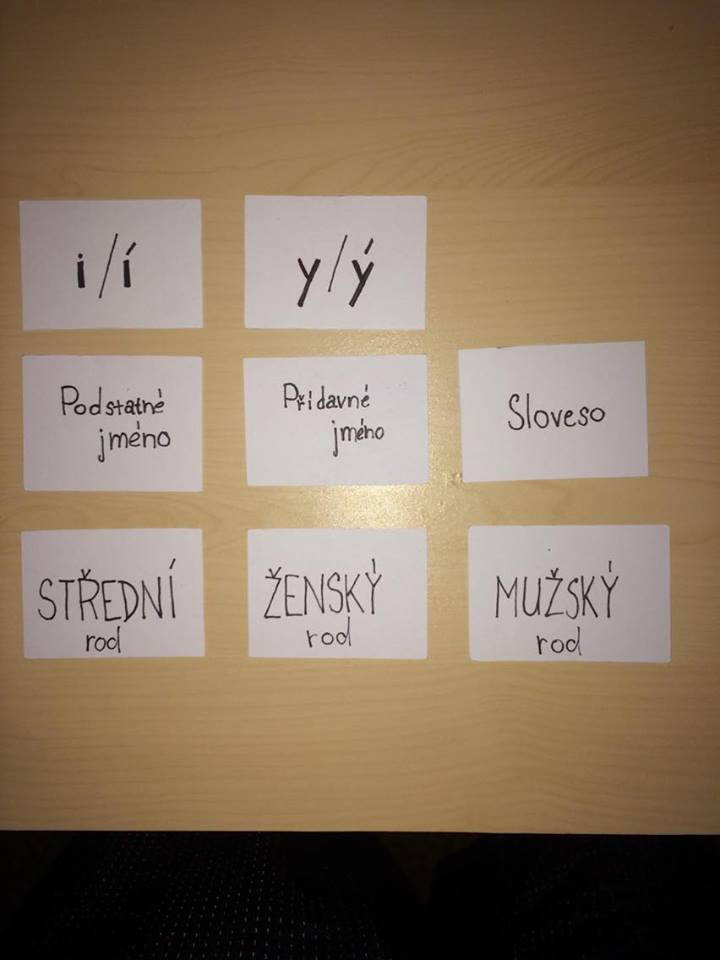 i/í
y/ý
Podstatné
jméno
Přídavné
jméno
Sloveso
STŘEDNÍ
rod
ŽENSKÝ
rod
MUŽSKÝ
rod